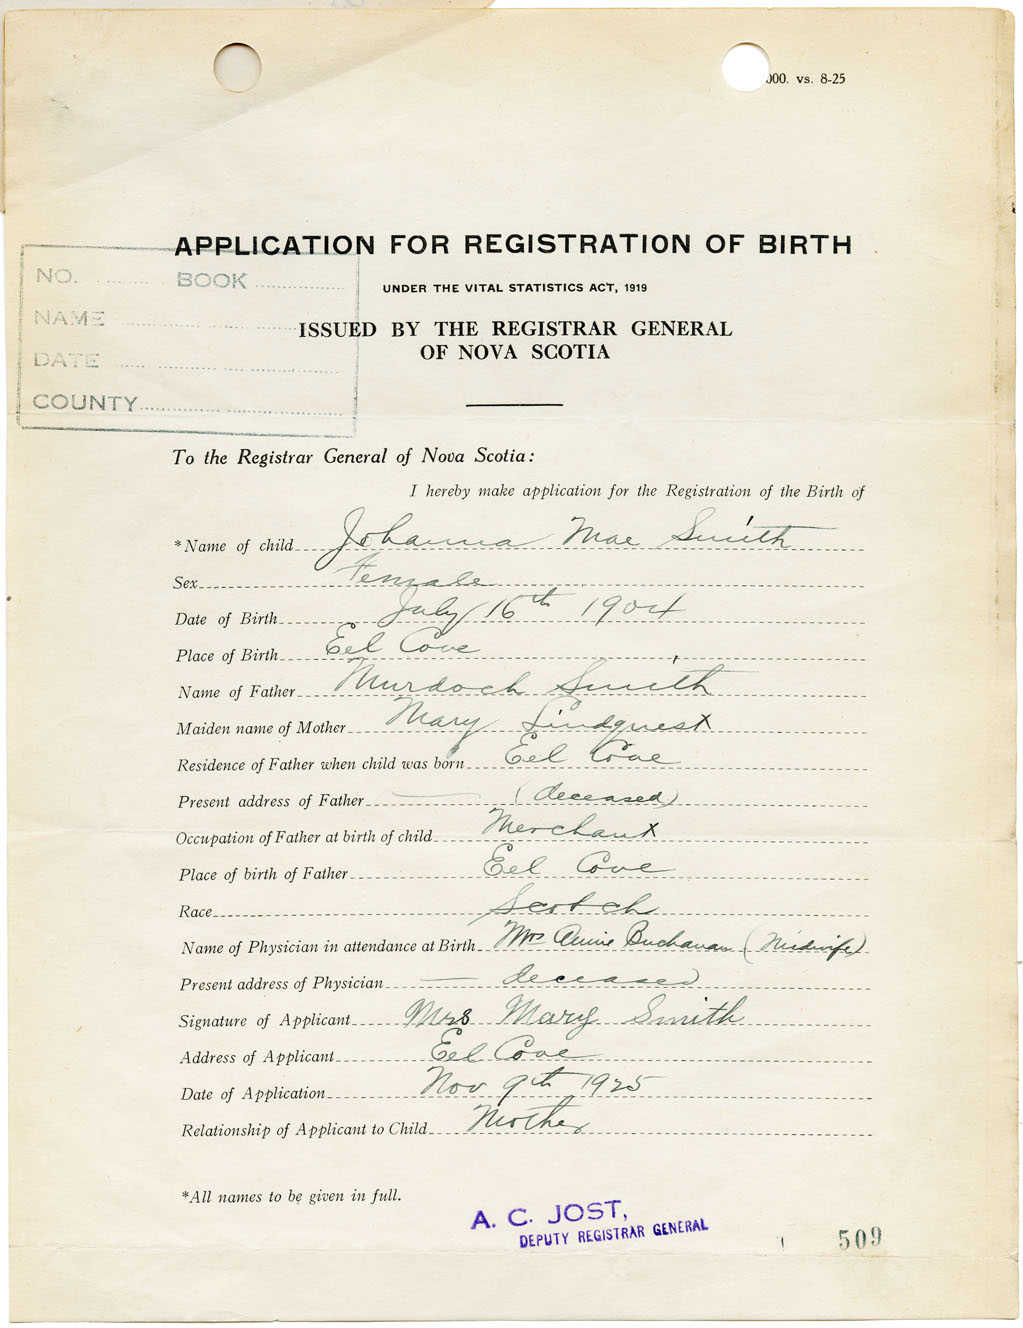 000. vs. 8-25
APPLICATION FOR REGISTRATION OF BIRTH
UNDER THE VITAL STATISTICS ACT, 1919
ISSUED BY THE REGISTRAR GENERAL
OF NOVA SCOTIA
NO. .......... BOOK ..............
NAME ..............
DATE ..............
COUNTY..............
To the Registrar General of Nova Scotia:
I hereby make application for the Registration of the Birth of
*Name of child Johanna Mae Smith
Sex Female
Date of Birth July 16th 1904
Place of Birth Eel Cove
Name of Father Murdoch Smith
Maiden name of Mother Mary Lindquest
Residence of Father when child was born Eel Cove
Present address of Father (deceased)
Occupation of Father at birth of child Merchant
Place of birth of Father Eel Cove
Race Scotch
Name of Physician in attendance at Birth Mrs Annie Buchanan (Midwife)
Present address of Physician deceased
Signature of Applicant Mrs Mary Smith
Address of Applicant Eel Cove
Date of Application Nov 9th 1925
Relationship of Applicant to Child Mother
*All names to be given in full.
A. C. JOST,
DEPUTY REGISTRAR GENERAL
509